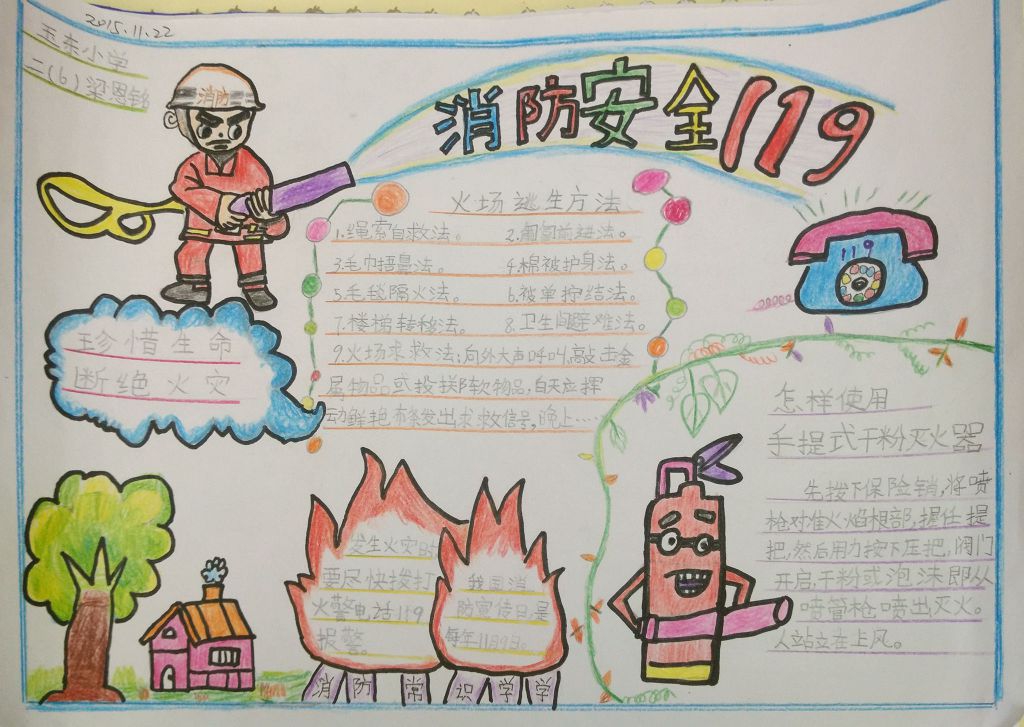 2015.11.22
玉东小学
二(6)梁恩铭
消防
消防安全119
119
火场逃生方法
1.绳索自救法。 2.匍匐前进法。
3.毛巾捂鼻法。 4.棉被护身法。
5.毛毯隔火法。 6.被单拧结法。
7.楼梯转移法。 8.卫生间避难法。
9.火场求救法:向外大声呼叫,敲击金
属物品或投掷软物品,白天应挥
动鲜艳布条发出求救信号,晚上……
珍惜生命
断绝火灾
怎样使用
手提式干粉灭火器
先拨下保险销,将喷
枪对准火焰根部,握住提
把,然后用力按下压把,阀门
开启,干粉或泡沫即从
喷管枪喷出灭火。
人站立在上风。
发生火灾时
要尽快拨打
火警电话119
报警。
我国消
防宣传日是
每年11月9日。
消防常识学学